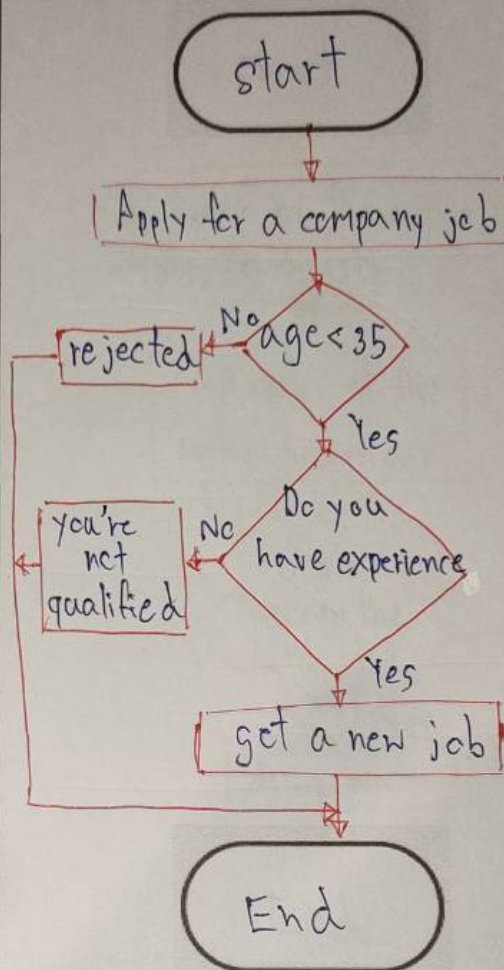 start
Apply for a company job
No
age < 35
rejected
Yes
Do you
have experience
No
you're
not
qualified
Yes
get a new job
End